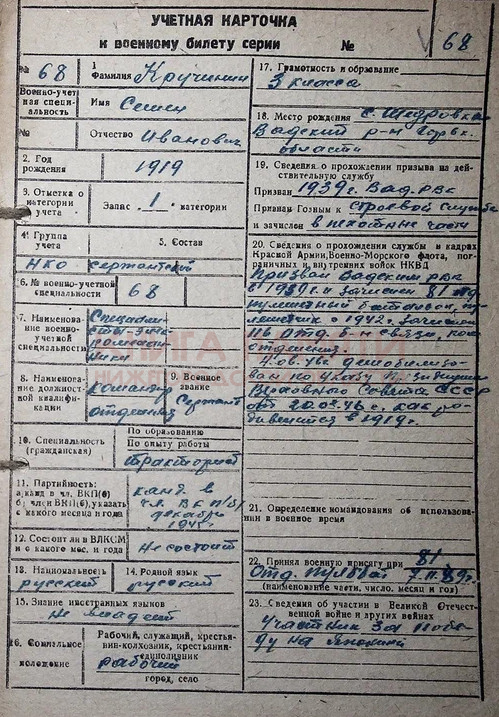 УЧЕТНАЯ КАРТОЧКА
к военному билету серии № 68
№ 68
Военно-учетная специальность
№
1
Фамилия Кручинин
Имя Семен
Отчество Иванович
2. Год рождения 1919
3. Отметка о категории учета
Запас 1 категории
4. Группа учета
НКО
5. Состав
сержантский
6. № военно-учетной специальности 68
7. Наименование военно-учетной специальности
8. Наименование должностной квалификации
командир
отделения
9. Военное звание
Сержант
10. Специальность (гражданская)
По образованию
По опыту работы
тракторист
11. Партийность:
а) канд. в чл. ВКП(б)
б) член ВКП(б), указать
с какого месяца и года
канд. в
чл. ВКП(б)
декабрь
12. Состоит ли в ВЛКСМ
и с какого мес. и года
Не состоит
13. Национальность
русский
14. Родной язык
русский
15. Знание иностранных языков
Не владеет
16. Социальное положение
Рабочий, служащий, крестьянин-колхозник, крестьянин-единоличник
рабочий
город, село
17. Грамотность и образование
3 класса
18. Место рождения с. Щедровка
Вадский р-н Горьк.
области
19. Сведения о прохождении призыва на действительную службу
Призван 1939 г. Вад. РВК
Признан Годным к строевой службе
и зачислен в пехотные части
20. Сведения о прохождении службы в кадрах
Красной Армии, Военно-Морского флота, пограничных и внутренних войск НКВД
Призван Вадским РВК
в 1939 г. и зачислен 81 отд
пулеметный батальон,
с 1942. зачислен
отд. б-н связи, ком.
отделения
демобилизован по указу Президиума
Верховного Совета СССР
от 20.03.46 г. как родившегося в 1919 г.
21. Определение командования об использовании в военное время
22. Принял военную присягу при 81
Отд. пулбат 7.11.39 г.
(наименование части, число, месяц и год)
23. Сведения об участии в Великой Отечественной войне и других войнах
Участник За победу над Японией
КНИГА ПАМЯТИ